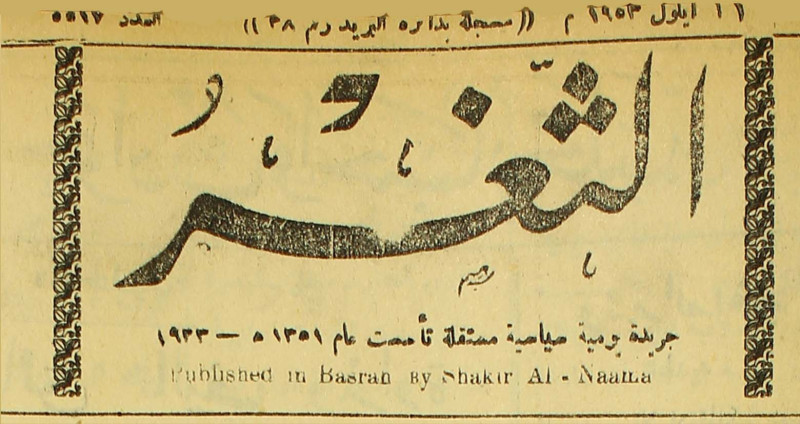 ١١ ايلول ١٩٥٣ م ((مسجلة بدائرة البريد رقم ٣٨)) العدد ٥٥١٧
الثَّغْرُ
جريدة يومية سياسية مستقلة تأسست عام ١٣٥١ ه — ١٩٣٣
Published in Basrah By Shakir Al - Naama